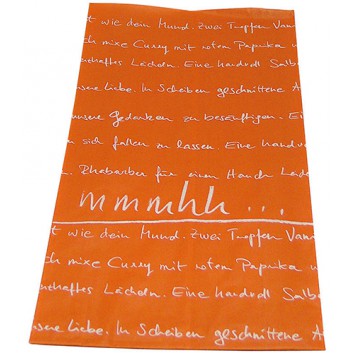 t wie dein Mund. Zwei Tropfen Van
ch mixe Curry mit rotem Paprika u
nhaftes Lächeln. Eine Handvoll Salb
unsere Liebe. In Scheiben geschnittene A
unsere Gedanken zu besänftigen. E
m sich fallen zu lassen. Eine Handvo
Rhabarber für einen Hauch Leid
mmmhh...
t wie dein Mund. Zwei Tropfen Van
ch mixe Curry mit rotem Paprika u
nhaftes Lächeln. Eine Handvoll Salb
sere Liebe. In Scheiben geschnittene A